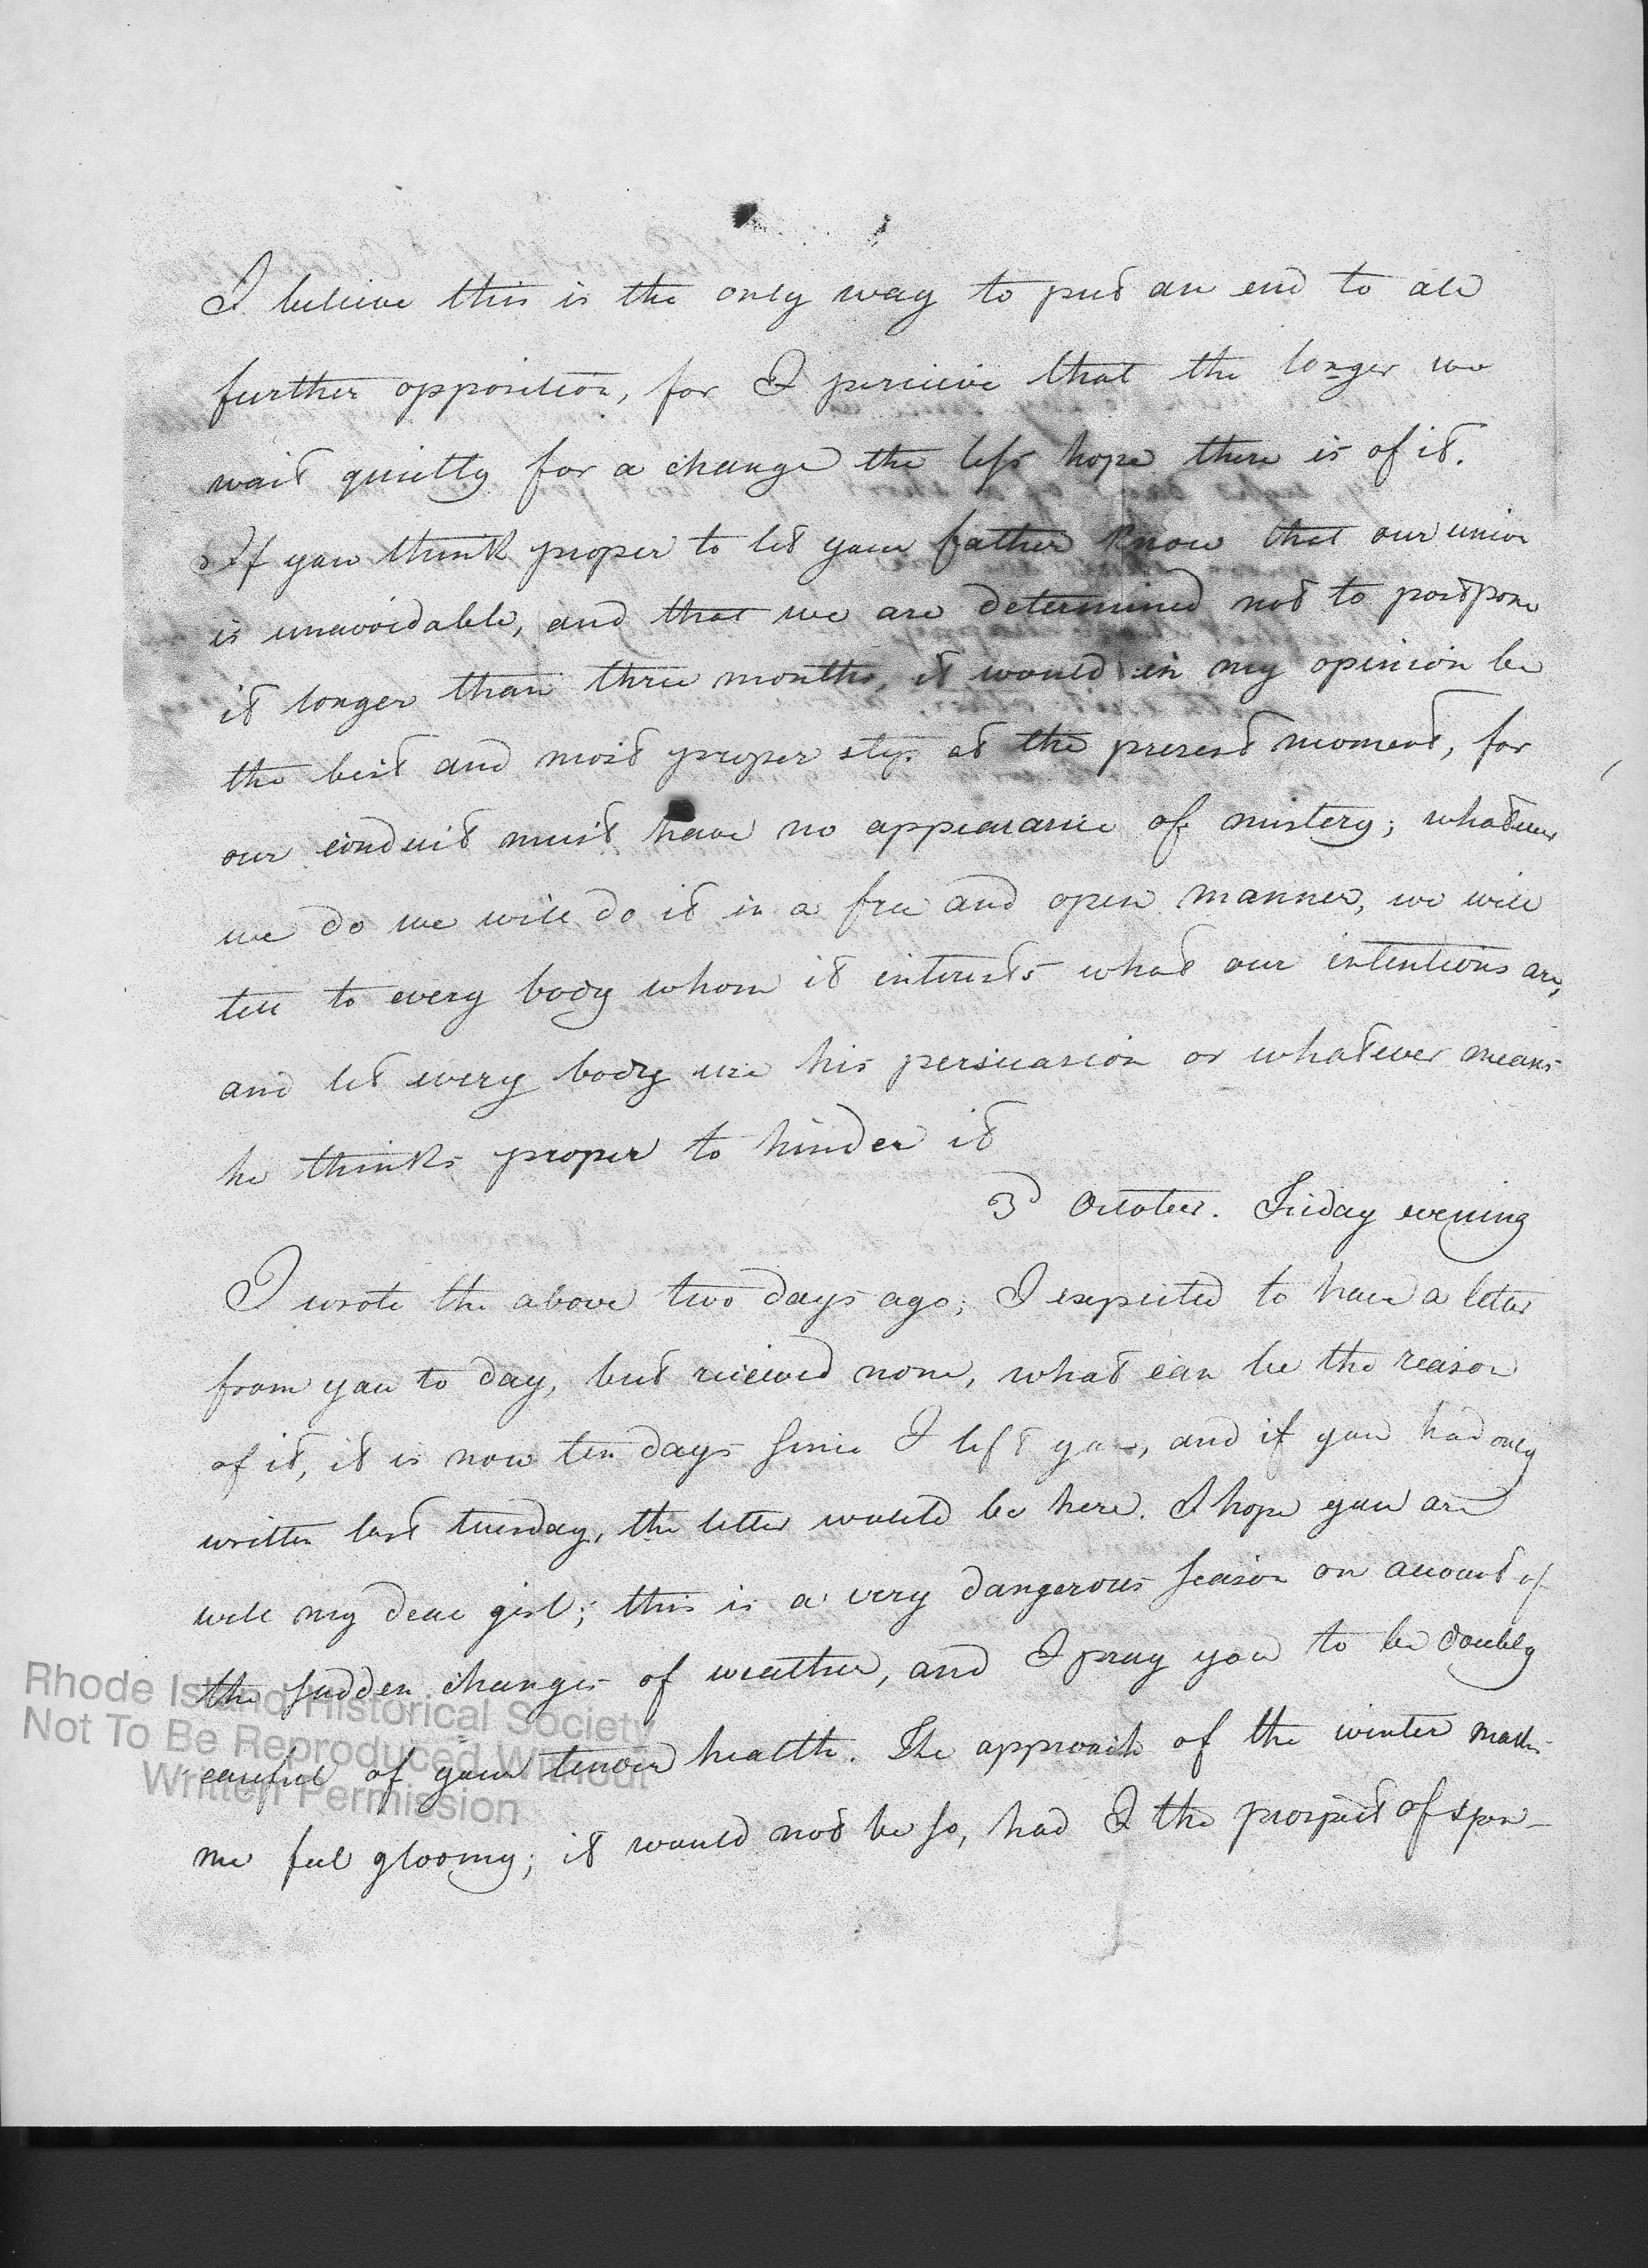 I believe this is the only way to put an end to all
further opposition, for I perceive that the longer we
wait quietly for a change the less hope there is of it.
If you think proper to let your father know that our union
is unavoidable, and that we are determined not to postpone
it longer than three months, it would in my opinion be
the best and most proper step at the present moment, for
our conduit must have no appearance of mistery; whatever
we do we will do it in a free and open manner, we will
tell to every body whom it interests what our intentions are,
and let every body use his persuasion or whatever means
he thinks proper to hinder it
3d October. Friday evening
I wrote the above two days ago; I expected to have a letter
from you to day, but received none, what can be the reason
of it, it is now ten days since I left you, and if you had only
written last tuesday, the letter would be here. I hope you are
well my dear girl; this is a very dangerous season on account of
the sudden changes of weather, and I pray you to be doubly
careful of your tender health. The approach of the winter makes
me feel gloomy; it would not be so, had I the prospect of spen-
Rhode Island Historical Society
Not To Be Reproduced Without
Written Permission